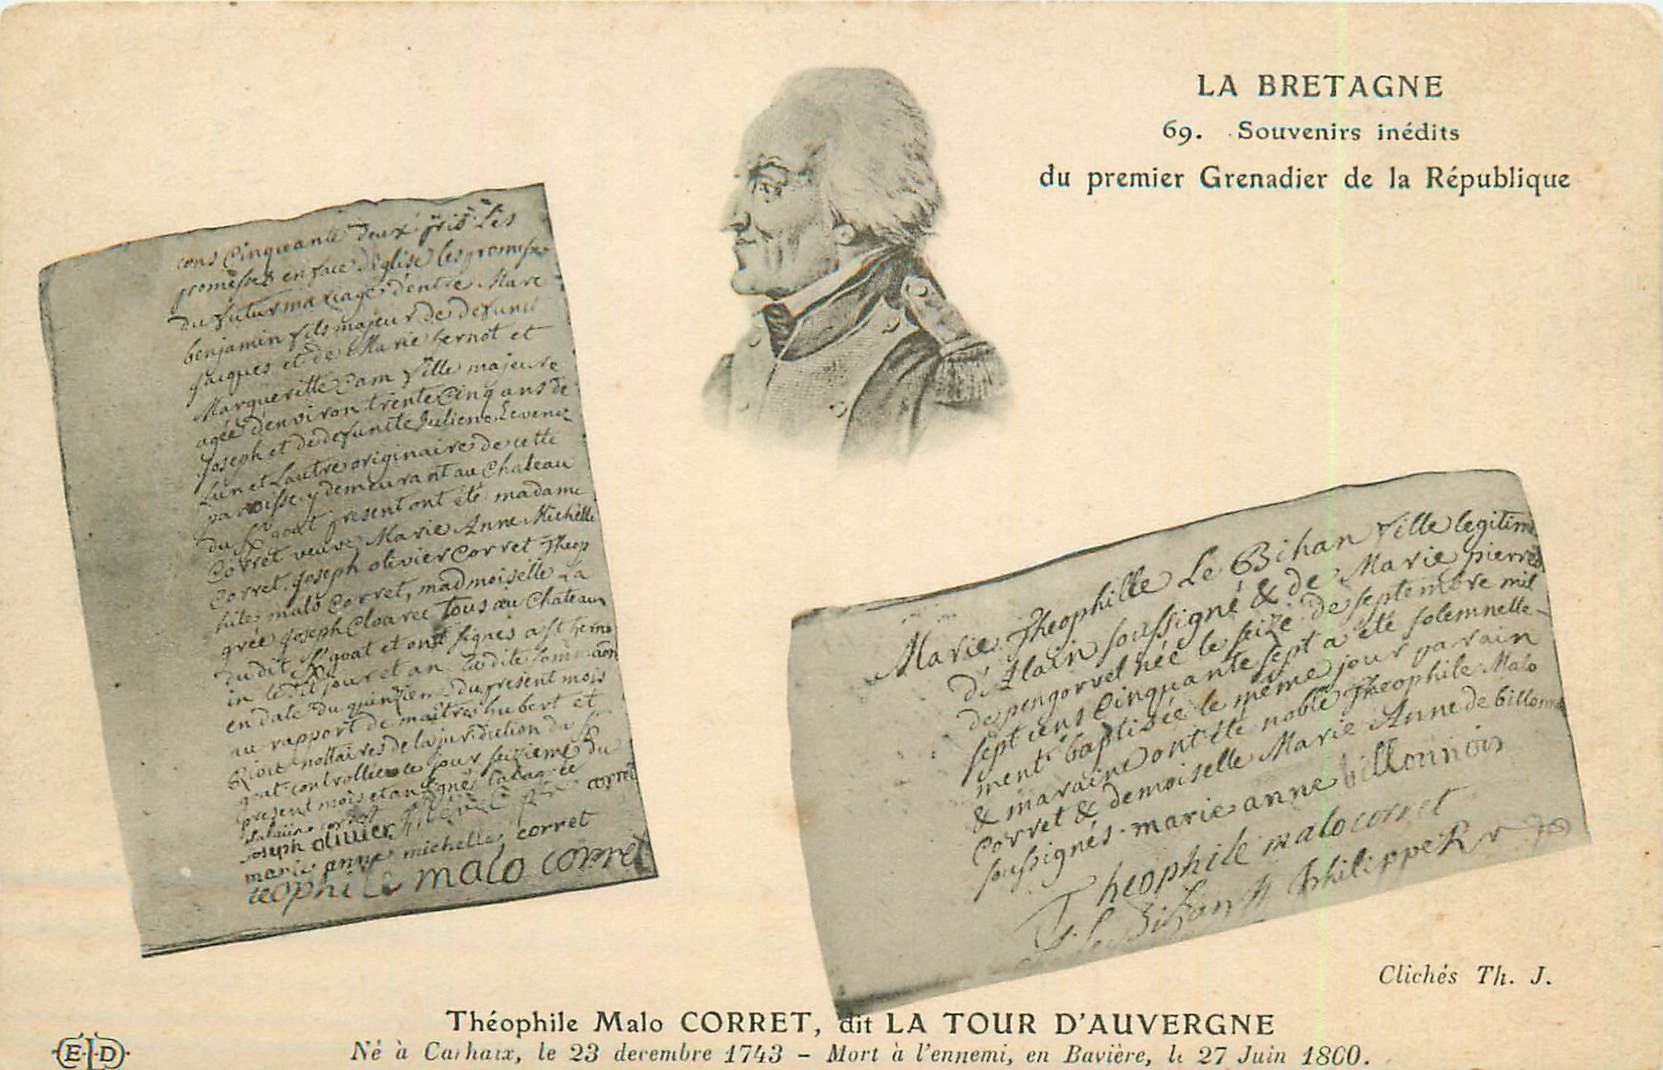 LA BRETAGNE
69. Souvenirs inédits
du premier Grenadier de la République
cens Cinquante deux pris Les
promesses en face d'Eglise les promesses
du futur mariage d'entre Marc
benjamin fils majeur de defunct
Jacques et de Marie bernot et
Margueritte Cam fille majeure
agée d'environ trente Cinq ans de
Joseph et de defuncte Julienne
Lun et Lautre originaire de cette
paroisse y demeurant au Chateau
du goat present ont été madame
Corret veuve Marie Anne Michelle
Corret, Joseph olivier Corret Theop
hile malo Corret, madmoiselle La
grée Joseph Cloarec tous au Chateau
dudit goat et ont signés a st herno
in le dit jour et an Ladite sommaon
en date du quinzieme du present mois
au rapport de maitres hubert et
Rioit nottaires de la juridiction du
goat controllie le jour seizieme du
present mois et an signés
joseph olivier corret
marie anne michelle corret
teophile malo corret
Marie Theophille Le Bihan fille legitime
d'Alain soussigné & de Marie pierre
de pengorvel née le seize de septembre mil
sept cens Cinquante sept a été solemnelle-
ment baptisée le même jour parain
& maraine ont été noble Theophile Malo
Corret & demoiselle Marie Anne de billonnois
soussignés. marie anne billonnois
Theophile malo corret
le Bihan Philippe Rr
Clichés Th. J.
Théophile Malo CORRET, dit LA TOUR D'AUVERGNE
Né à Carhaix, le 23 decembre 1743 – Mort à l'ennemi, en Bavière, le 27 Juin 1800.
E.L.D